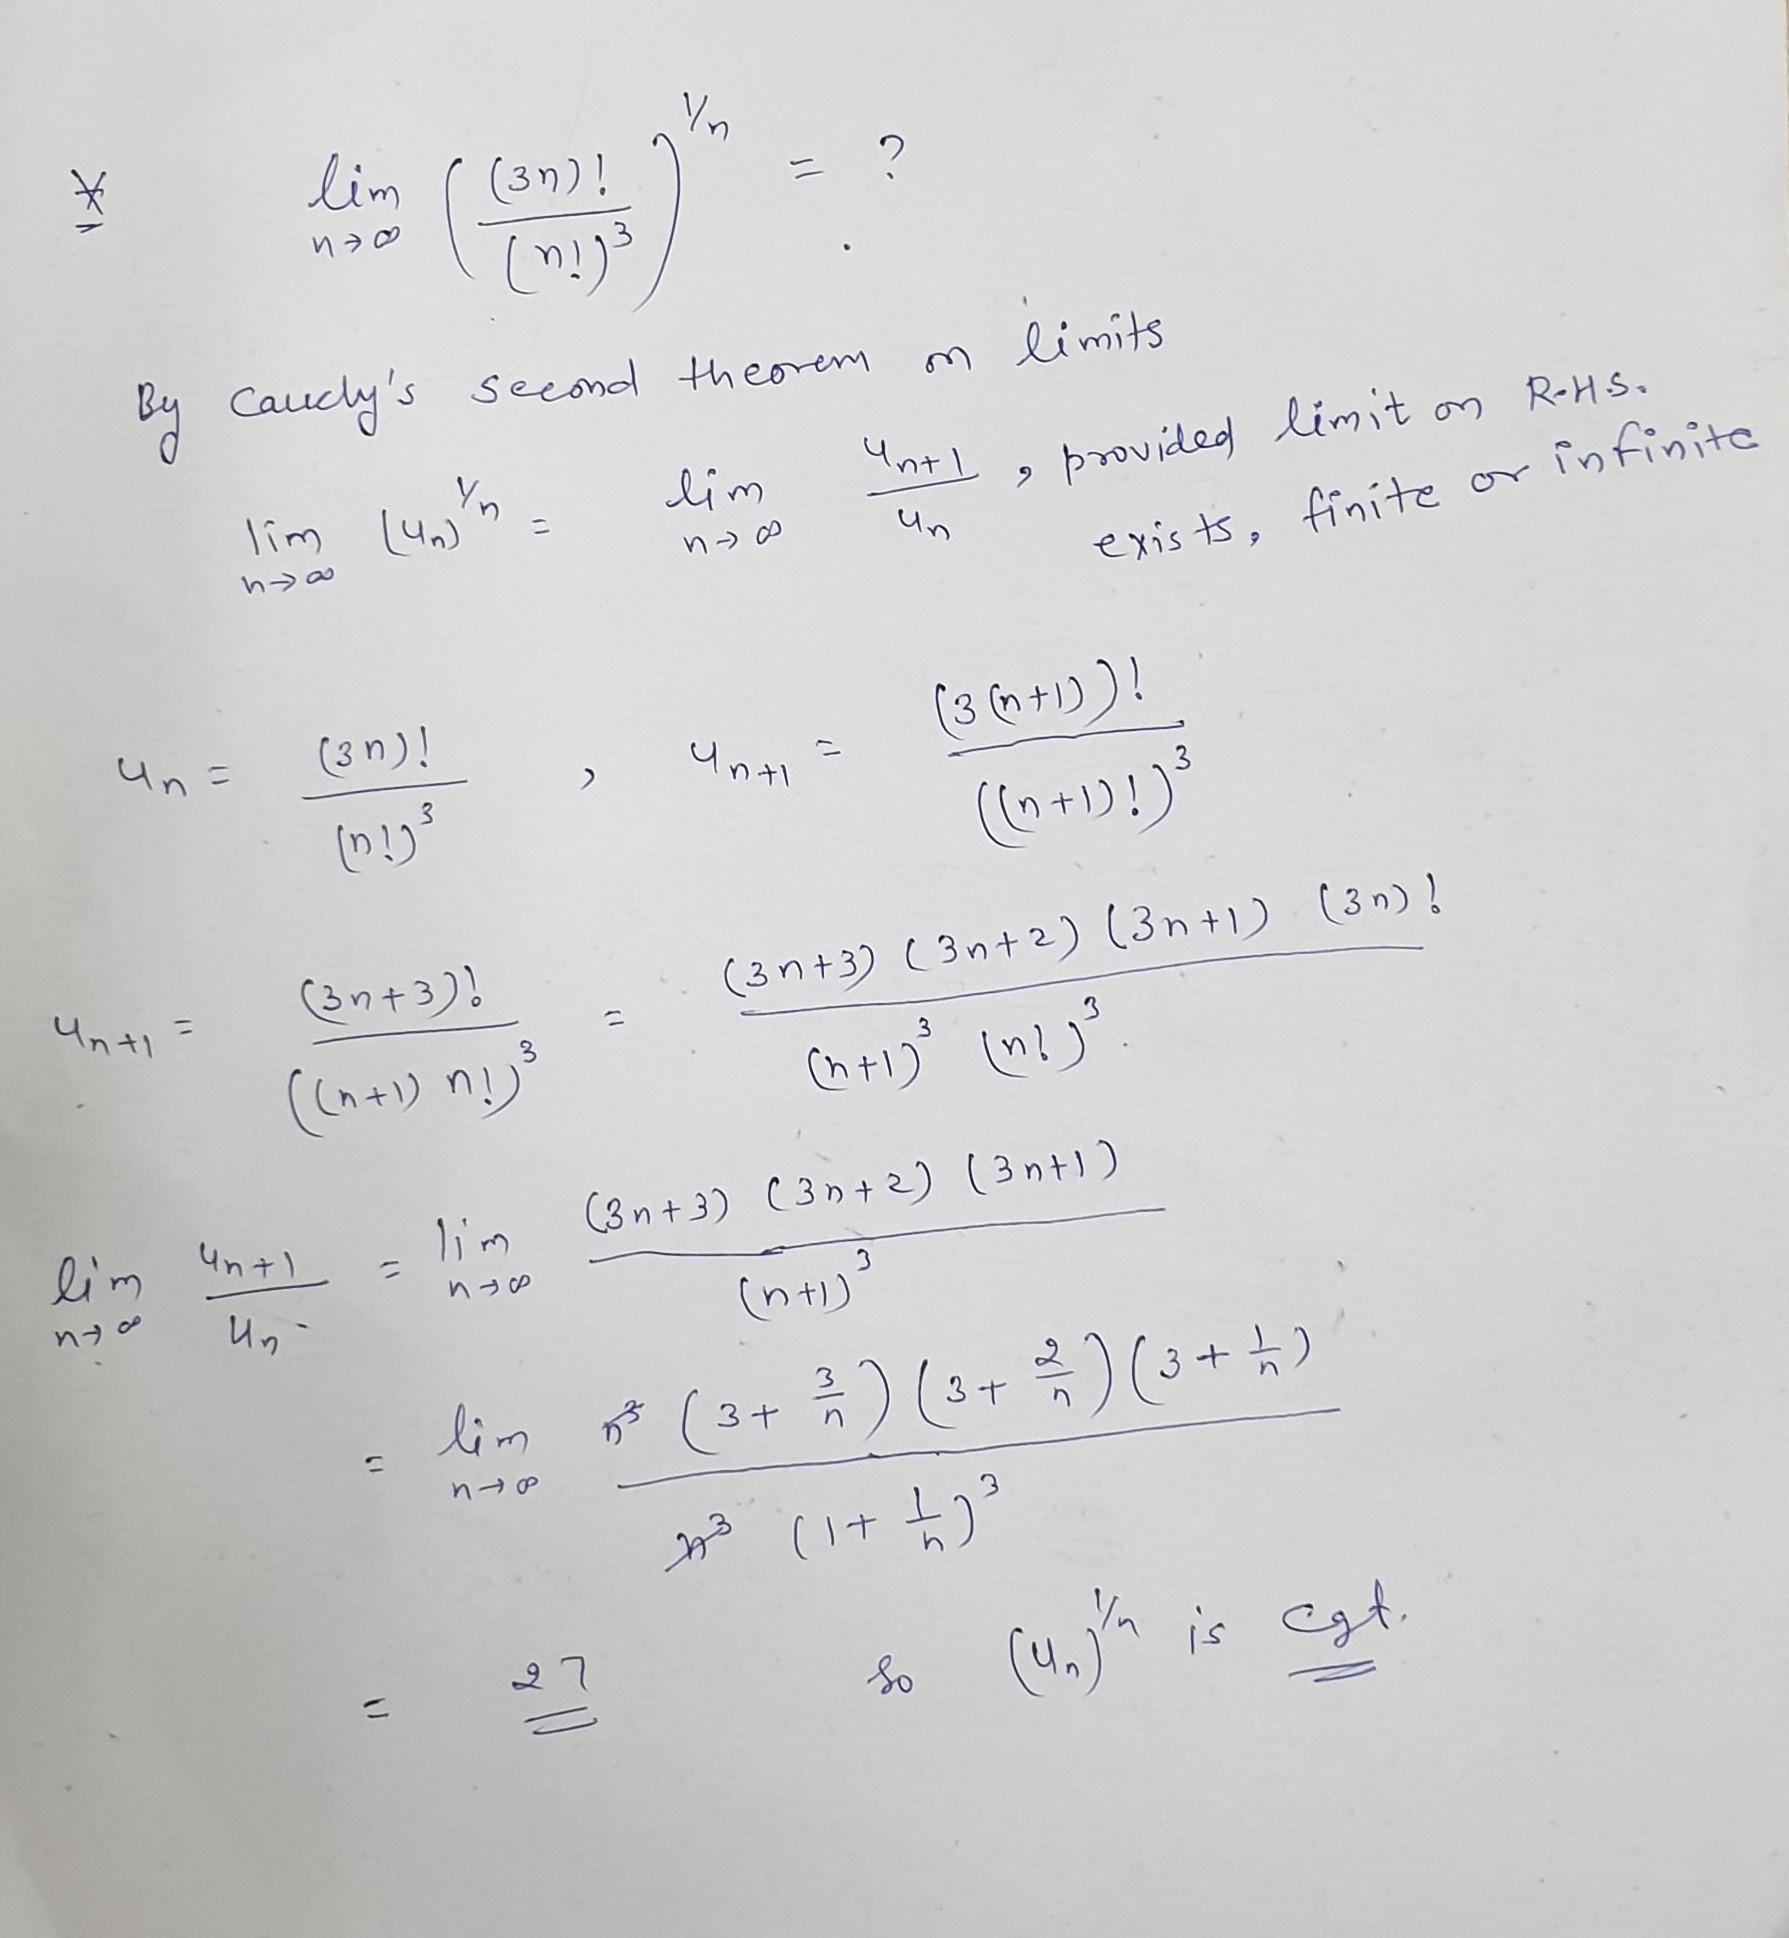 * lim n→∞ ( (3n)! / (n!)³ )^1/n = ?
By Cauchy's second theorem on limits
lim n→∞ (un)^1/n = lim n→∞ un+1 / un , provided limit on R.H.S.
exists, finite or infinite
un = (3n)! / (n!)³ , un+1 = (3(n+1))! / ((n+1)!)³
un+1 = (3n+3)! / ((n+1) n!)³ = (3n+3) (3n+2) (3n+1) (3n)! / (n+1)³ (n!)³.
lim n→∞ un+1 / un = lim n→∞ (3n+3) (3n+2) (3n+1) / (n+1)³
= lim n→∞ n³ (3 + 3/n) (3 + 2/n) (3 + 1/n) / n³ (1 + 1/n)³
= 27 so (un)^1/n is cgt.